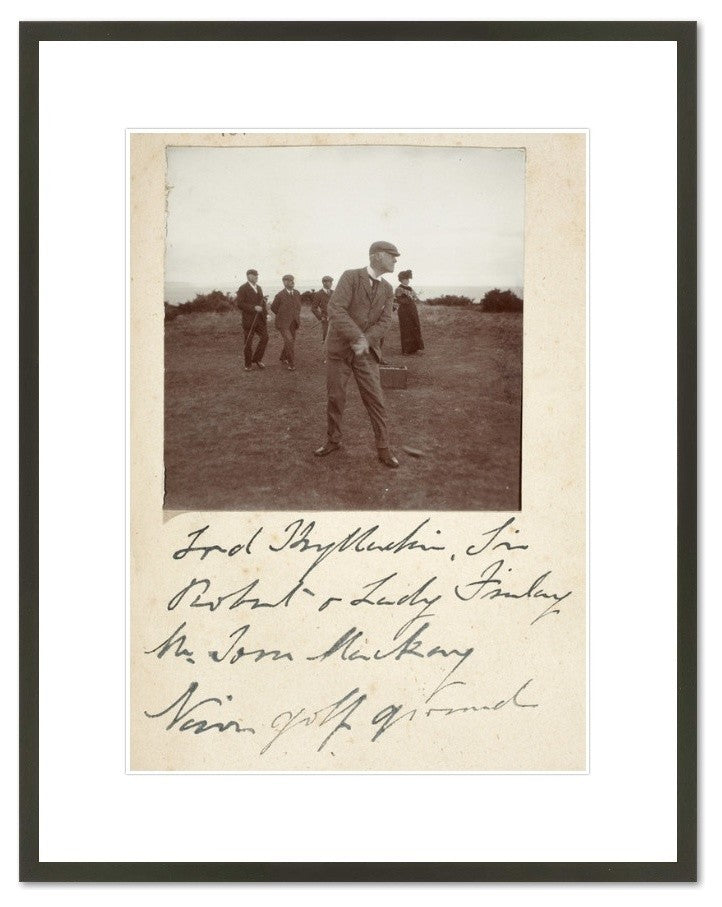 Lord Sir
Robert & Lady Finlay
Mr. Tom Mackay
Nairn golf ground